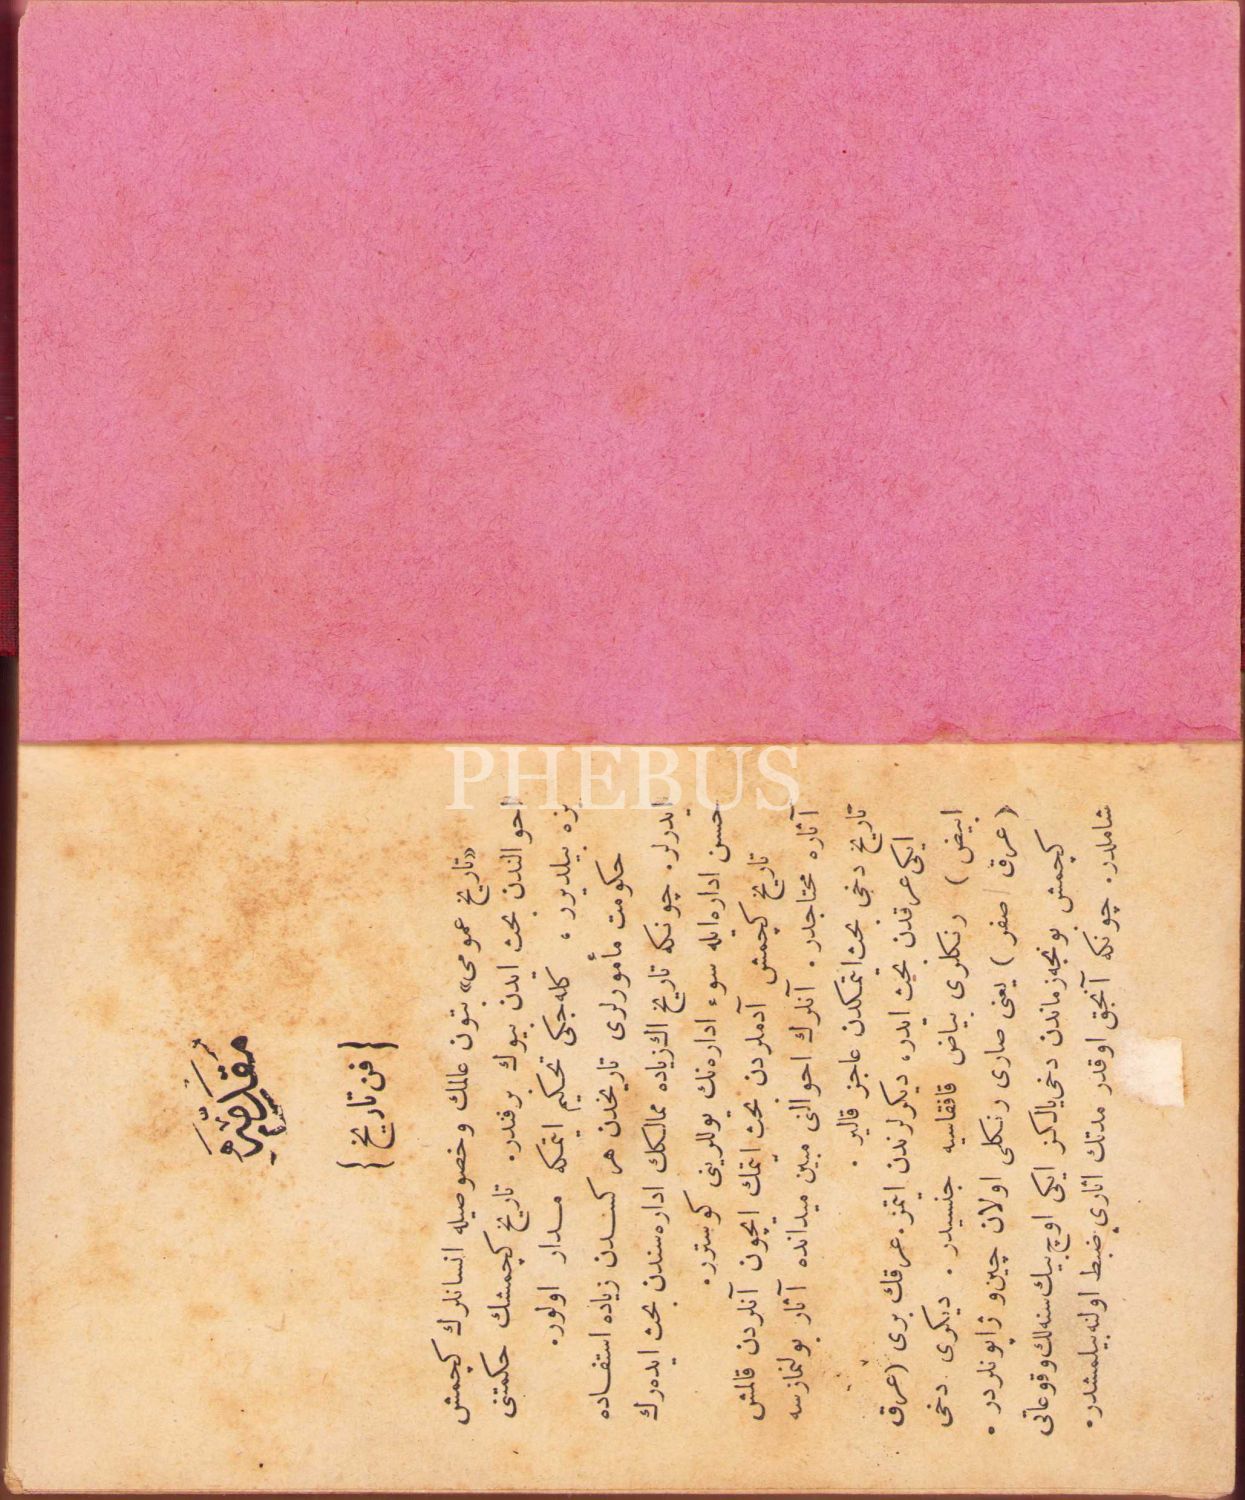 مقدمه
{ فن تاريخ }
«تاريخ عمومى» بتون عالمك وخصوصيله انسانلرك كچمش
احوالندن بحث ايدن بيوك بر فندر. تاريخ كچمشك حكمتنى
بزه بيلديرر، كله‌جكى تحكيم ايتمكه مـدار اولور.
حكومت مأمورلرى تاريخدن هر كسـدن زياده استفـاده
ايدرلر. چونكه تاريخ اك زياده ممالكك اداره‌سندن بحث ايده‌رك
حسن اداره ايله سوء اداره‌نك يوللرينى كوستور.
تاريخ كچمش آدملردن بحث ايتمك ايچون آنلردن قالمش
آثاره محتاجدر. آنلرك احوالنى مبين ميدانده آثار بولنمازسه
تاريخ دخى بحث ايتمكدن عاجز قالير.
ايكى عرقدن بحث ايدر، ديكرلرندن ايتمز. عرقك برى (عرق
ابيض) رنكلرى بياض قافقاسيه جنسيدر. ديكرى دخى
(عرق اصفر) يعنى صارى رنكلى اولان چين و ژاپونلردر.
كچمش بونجه زماندن دخى يالكز ايكى اوچ بيك سنه‌لك وقوعاتى
شاملدر. چونكه آنجق اوقدر مدتك اثارى ضبط اولنه‌بيلمشدر.
PHEBUS